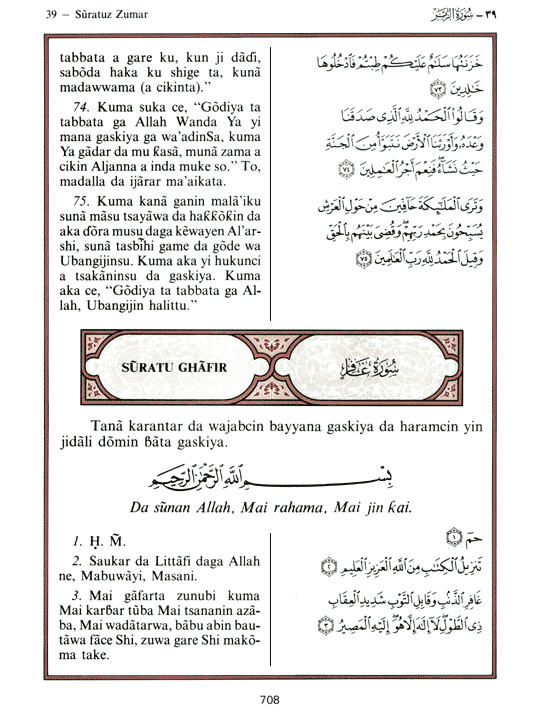 39 — Sũratuz Zumar
٣٩ - سُورَةُ الزُّمَرِ
tabbata a gare ku, kun ji dãɗi,
sabõda haka ku shige ta, kunã
madawwama (a cikinta)."
74. Kuma suka ce, "Gõdiya ta
tabbata ga Allah Wanda Ya yi
mana gaskiya ga wa'adinSa, kuma
Ya gãdar da mu ƙasã, munã zama a
cikin Aljanna a inda muke so." To,
madalla da ijãrar ma'aikata.
75. Kuma kanã ganin malã'iku
sunã mãsu tsayãwa da haƙƙõƙin da
aka ɗõra musu daga kẽwayen Al'ar-
shi, sunã tasbĩhi game da gõde wa
Ubangijinsu. Kuma aka yi hukunci
a tsakãninsu da gaskiya. Kuma
aka ce, "Gõdiya ta tabbata ga Al-
lah, Ubangijin halittu."
خَزَنَتُهَا سَلَٰمٌ عَلَيْكُمْ طِبْتُمْ فَٱدْخُلُوهَا
خَٰلِدِينَ ٧٣
وَقَالُوا۟ ٱلْحَمْدُ لِلَّهِ ٱلَّذِى صَدَقَنَا
وَعْدَهُۥ وَأَوْرَثَنَا ٱلْأَرْضَ نَتَبَوَّأُ مِنَ ٱلْجَنَّةِ
حَيْثُ نَشَآءُ فَنِعْمَ أَجْرُ ٱلْعَٰمِلِينَ ٧٤
وَتَرَى ٱلْمَلَٰٓئِكَةَ حَآفِّينَ مِنْ حَوْلِ ٱلْعَرْشِ
يُسَبِّحُونَ بِحَمْدِ رَبِّهِمْ وَقُضِىَ بَيْنَهُم بِٱلْحَقِّ
وَقِيلَ ٱلْحَمْدُ لِلَّهِ رَبِّ ٱلْعَٰلَمِينَ ٧٥
SŨRATU GHÃFIR
سُورَةُ غَافِرٍ
Tanã karantar da wajabcin bayyana gaskiya da haramcin yin
jidãli dõmin ɓãta gaskiya.
بِسْمِ ٱللَّهِ ٱلرَّحْمَٰنِ ٱلرَّحِيمِ
Da sũnan Allah, Mai rahama, Mai jin ƙai.
1. Ḥ. M̃.
2. Saukar da Littãfi daga Allah
ne, Mabuwãyi, Masani.
3. Mai gãfarta zunubi kuma
Mai karɓar tũba Mai tsananin azã-
ba, Mai wadãtarwa, bãbu abin bau-
tãwa fãce Shi, zuwa gare Shi makõ-
ma take.
حمٓ ١
تَنزِيلُ ٱلْكِتَٰبِ مِنَ ٱللَّهِ ٱلْعَزِيزِ ٱلْعَلِيمِ ٢
غَافِرِ ٱلذَّنۢبِ وَقَابِلِ ٱلتَّوْبِ شَدِيدِ ٱلْعِقَابِ
ذِى ٱلطَّوْلِ لَآ إِلَٰهَ إِلَّا هُوَ إِلَيْهِ ٱلْمَصِيرُ ٣
708